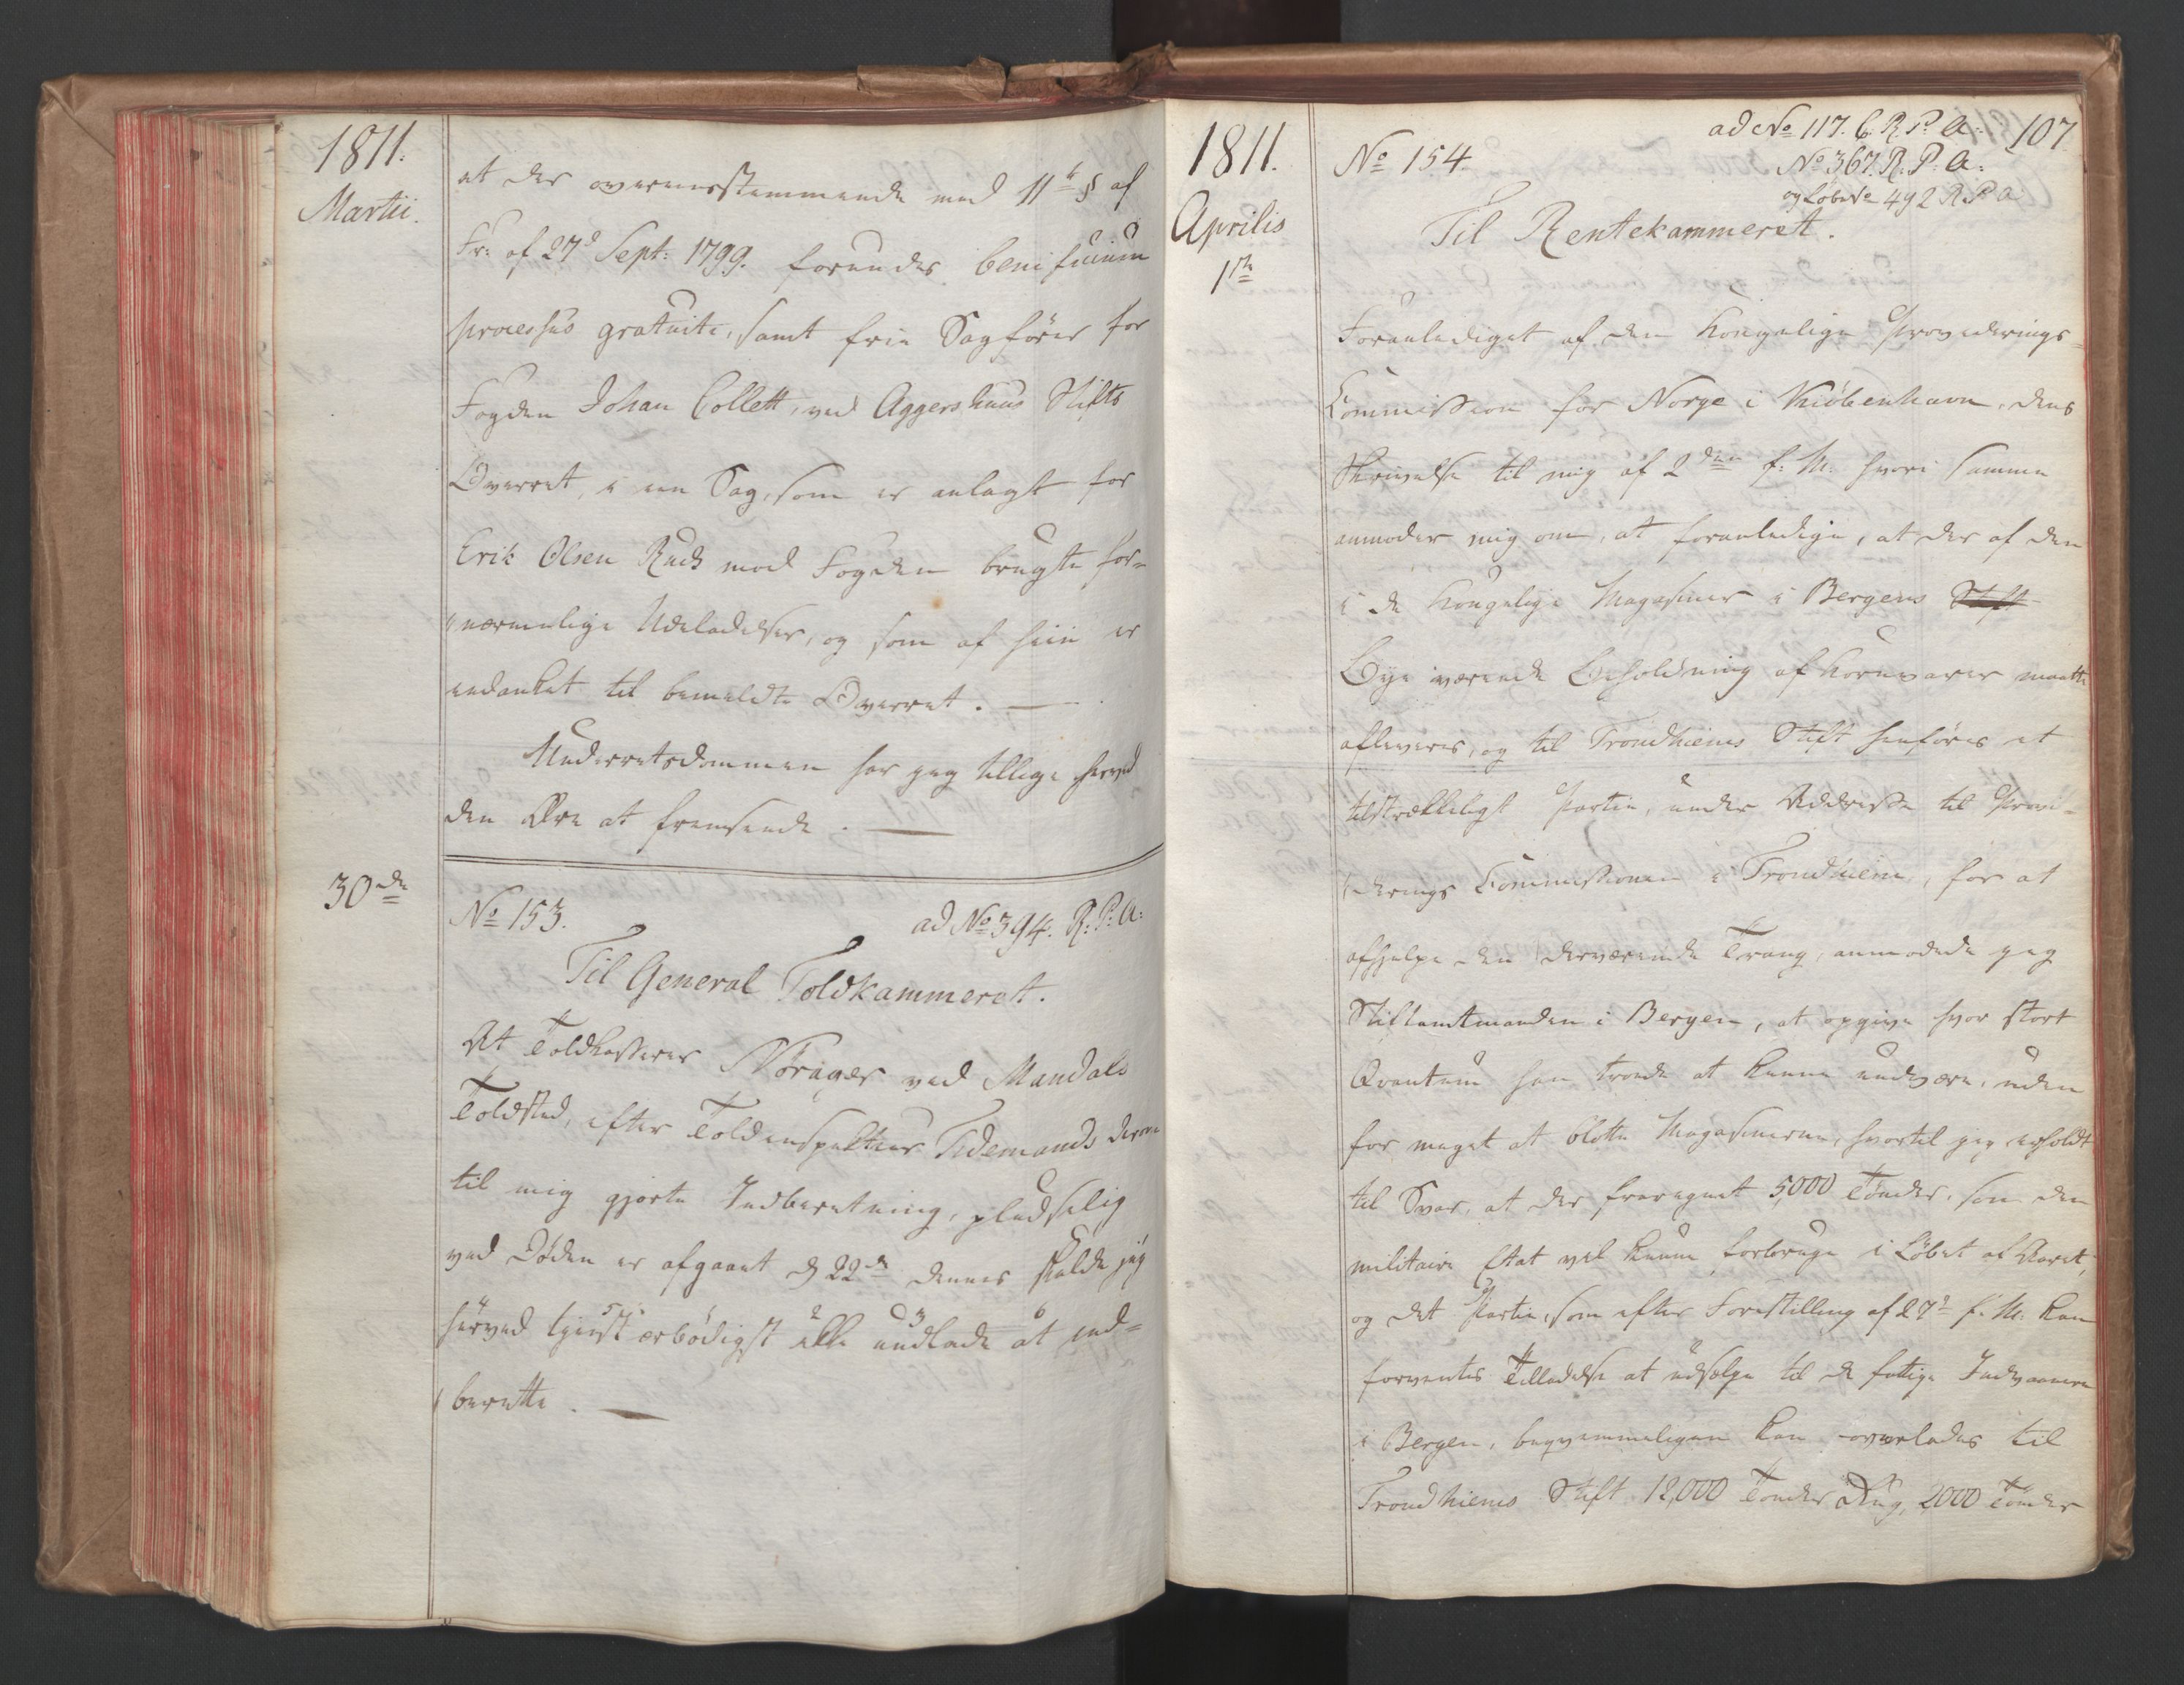 1811.
Martii.
at der overeensstemmende med 11te § af
Fr: af 27d Sept: 1799. forundes beneficium
processus gratuiti, samt frie Sagfører for
Fogden Johan Collett, ved Aggershuus Stifts
Overret, i een Sag, som er anlagt for
Erik Olsen Ruds mod Fogden brugte for-
nærmelige Udeladelser, og som af hiin er
indanket til bemeldte Overret. —
Underretsdommen har jeg tillige herved
den Ære at fremsende. —
30nde
No 153.
ad No 394. R: P: A:
Til General Toldkammeret.
At Toldkasserer Nørager ved Mandals
Toldsted, efter Toldinspekteur Tidemands derom
til mig gjorte Indberetning, pludselig
ved Døden er afgaaet d 22de dennes skulde jeg
herved tjenst ærbødigst ikke undlade at ind-
berette. —
1811.
Aprilis
1ste
107
ad No 117. C. R. P. A.
No 367. R. P. A:
og Løbe No 492 R. P. A
No 154.
Til Rentekammeret.
Foranlediget af den Kongelige Provederings-
Commission for Norge i Kiøbenhavn, dens
Skrivelse til mig af 2den f: M: hvori samme
anmoder mig om, at foranledige, at der af den
i de Kongelige Magasiner i Bergens Stift
Bye værende Beholdning af Kornvarer maatte
afleveres, og til Trondhiems Stift henføres et
tilstrækkeligt Partie, under Addresse til Provi-
derings Commissionen i Trondhiem, for at
afhjelpe den derværende Trang, anmodede jeg
Stiftamtmanden i Bergen, at opgive hvor stort
Qvantum han troede at kunne undvære, uden
for meget at blotte Magasinerne, hvortil jeg erholdt
til Svar, at der fraregnet 5000 Tønder, som den
militaire Etat vil kunne forbruge i Løbet af Aaret,
og det Partie, som efter Forestilling af 27d f: M: kan
forventes Tilladelse at udsælge til de fattige Indvaanere
i Bergen, beqvemmeligen kan overlades til
Trondhiems Stift 12,000 Tønder Rug, 2000 Tønder